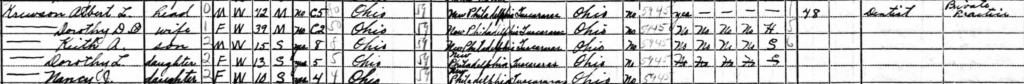 Albert L. head 0 M W 42 M no C5 Ohio 59 New Philadelphia Tuscarawas Ohio no 5945 yes — — — — 48 Dentist Private Practice
— Dorothy D. wife 1 F W 39 M no C2 Ohio 59 New Philadelphia Tuscarawas Ohio no No No No No H
— Keith A. son 2 M W 15 S yes 8 Ohio 59 New Philadelphia Tuscarawas Ohio no 5945 No No No No S
— Dorothy L. daughter 2 F W 13 S yes 5 Ohio 59 New Philadelphia Tuscarawas Ohio no 5945 S
— Nancy J. daughter 2 F W 10 S yes 4 Ohio 59 Philadelphia Tuscarawas Ohio no 5945